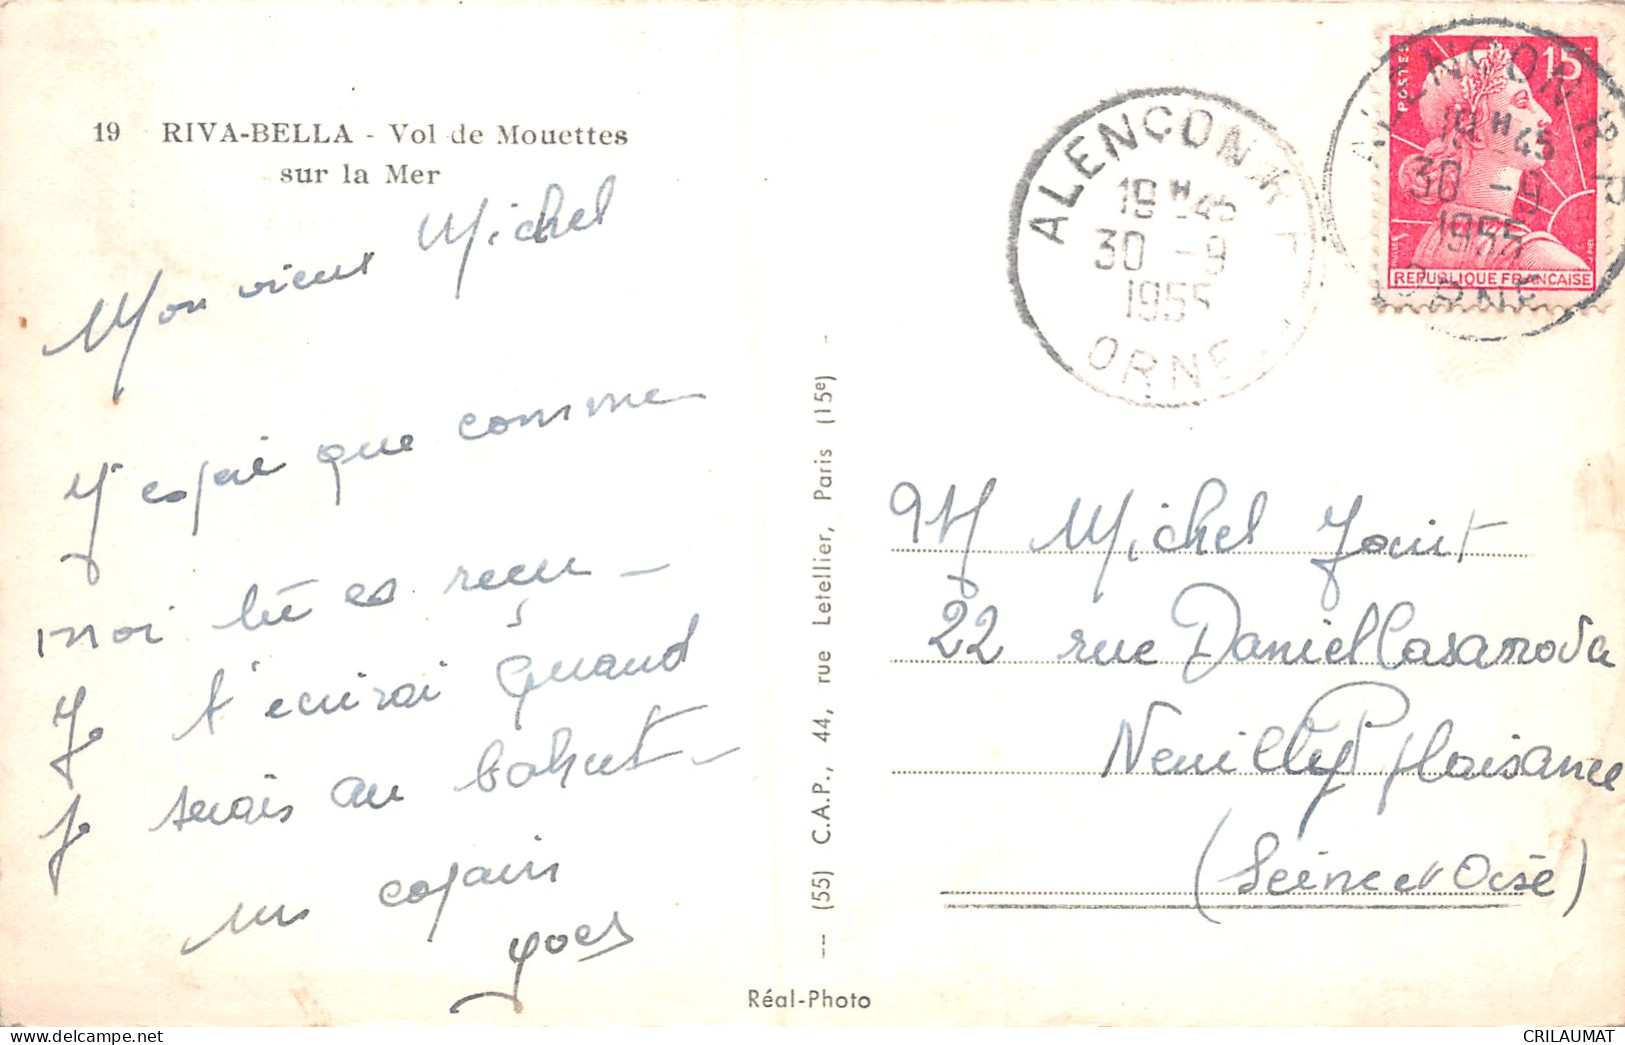 19 RIVA-BELLA - Vol de Mouettes
sur la Mer
Mon vieux Michel
J'espère que comme
moi tu es reçu
Je t'ecrirai quand
Je serais au bahut
un copain
Yves
(55) C.A.P., 44, rue Letellier, Paris (15e)
Réal-Photo
ALENÇON R.P.
18H45
30 -9
1955
ORNE
ALENÇON R.P.
18H45
30 -9
1955
ORNE
POSTES
15F
REPUBLIQUE FRANCAISE
M Michel
22 rue Daniel Casanova
Neuilly Plaisance
(Seine et Oise)
CRILAUMAT